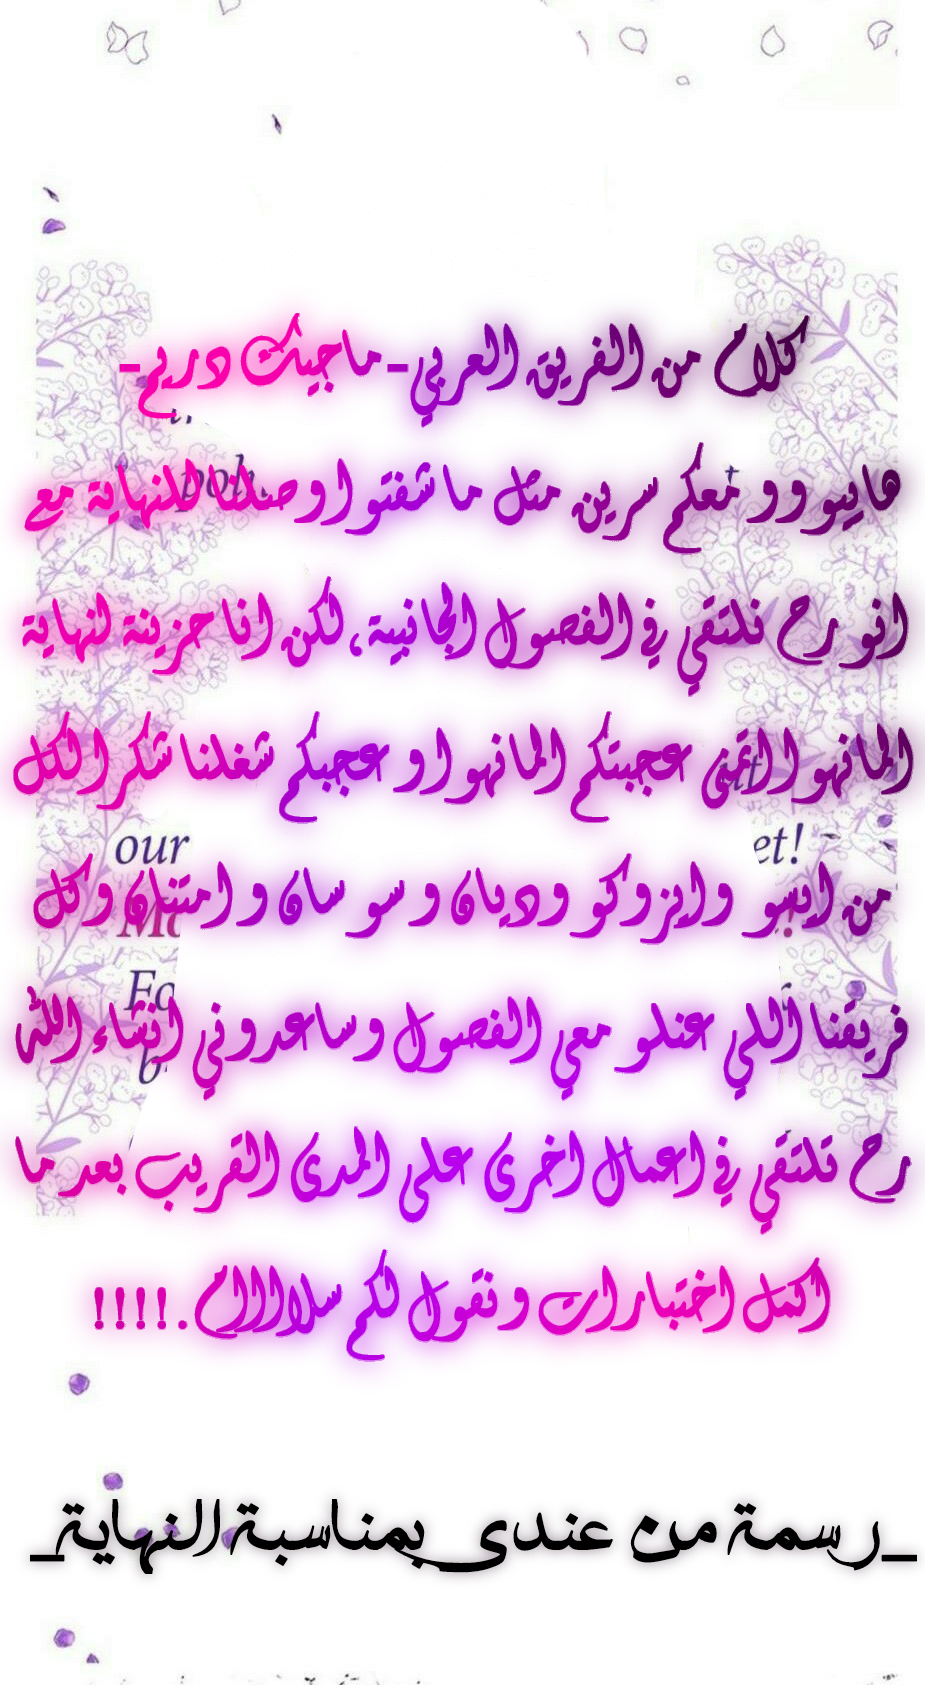 كلام من الفريق العربي_ماجيك دريم_
هاييوو معكم سرين مثل ما شفتوا وصلنا للنهاية مع
انو رح نلتقي في الفصول الجانبية، لكن انا حزينة لنهاية
المانهوا اتمنى عجبتكم المانهوا و عجبكم شغلنا شكرا لكل
من ايسو وايزوكو وديان و سوسان و امتنان وكل
فريقنا اللي عنلو معي الفصول وساعدوني انشاء الله
رح نلتقي في اعمال اخرى على المدى القريب بعد ما
اكمل اختبارات و نقول لكم سلاااام.!!!!
our
et!
Fo
_رسمة من عندي بمناسبة النهاية_